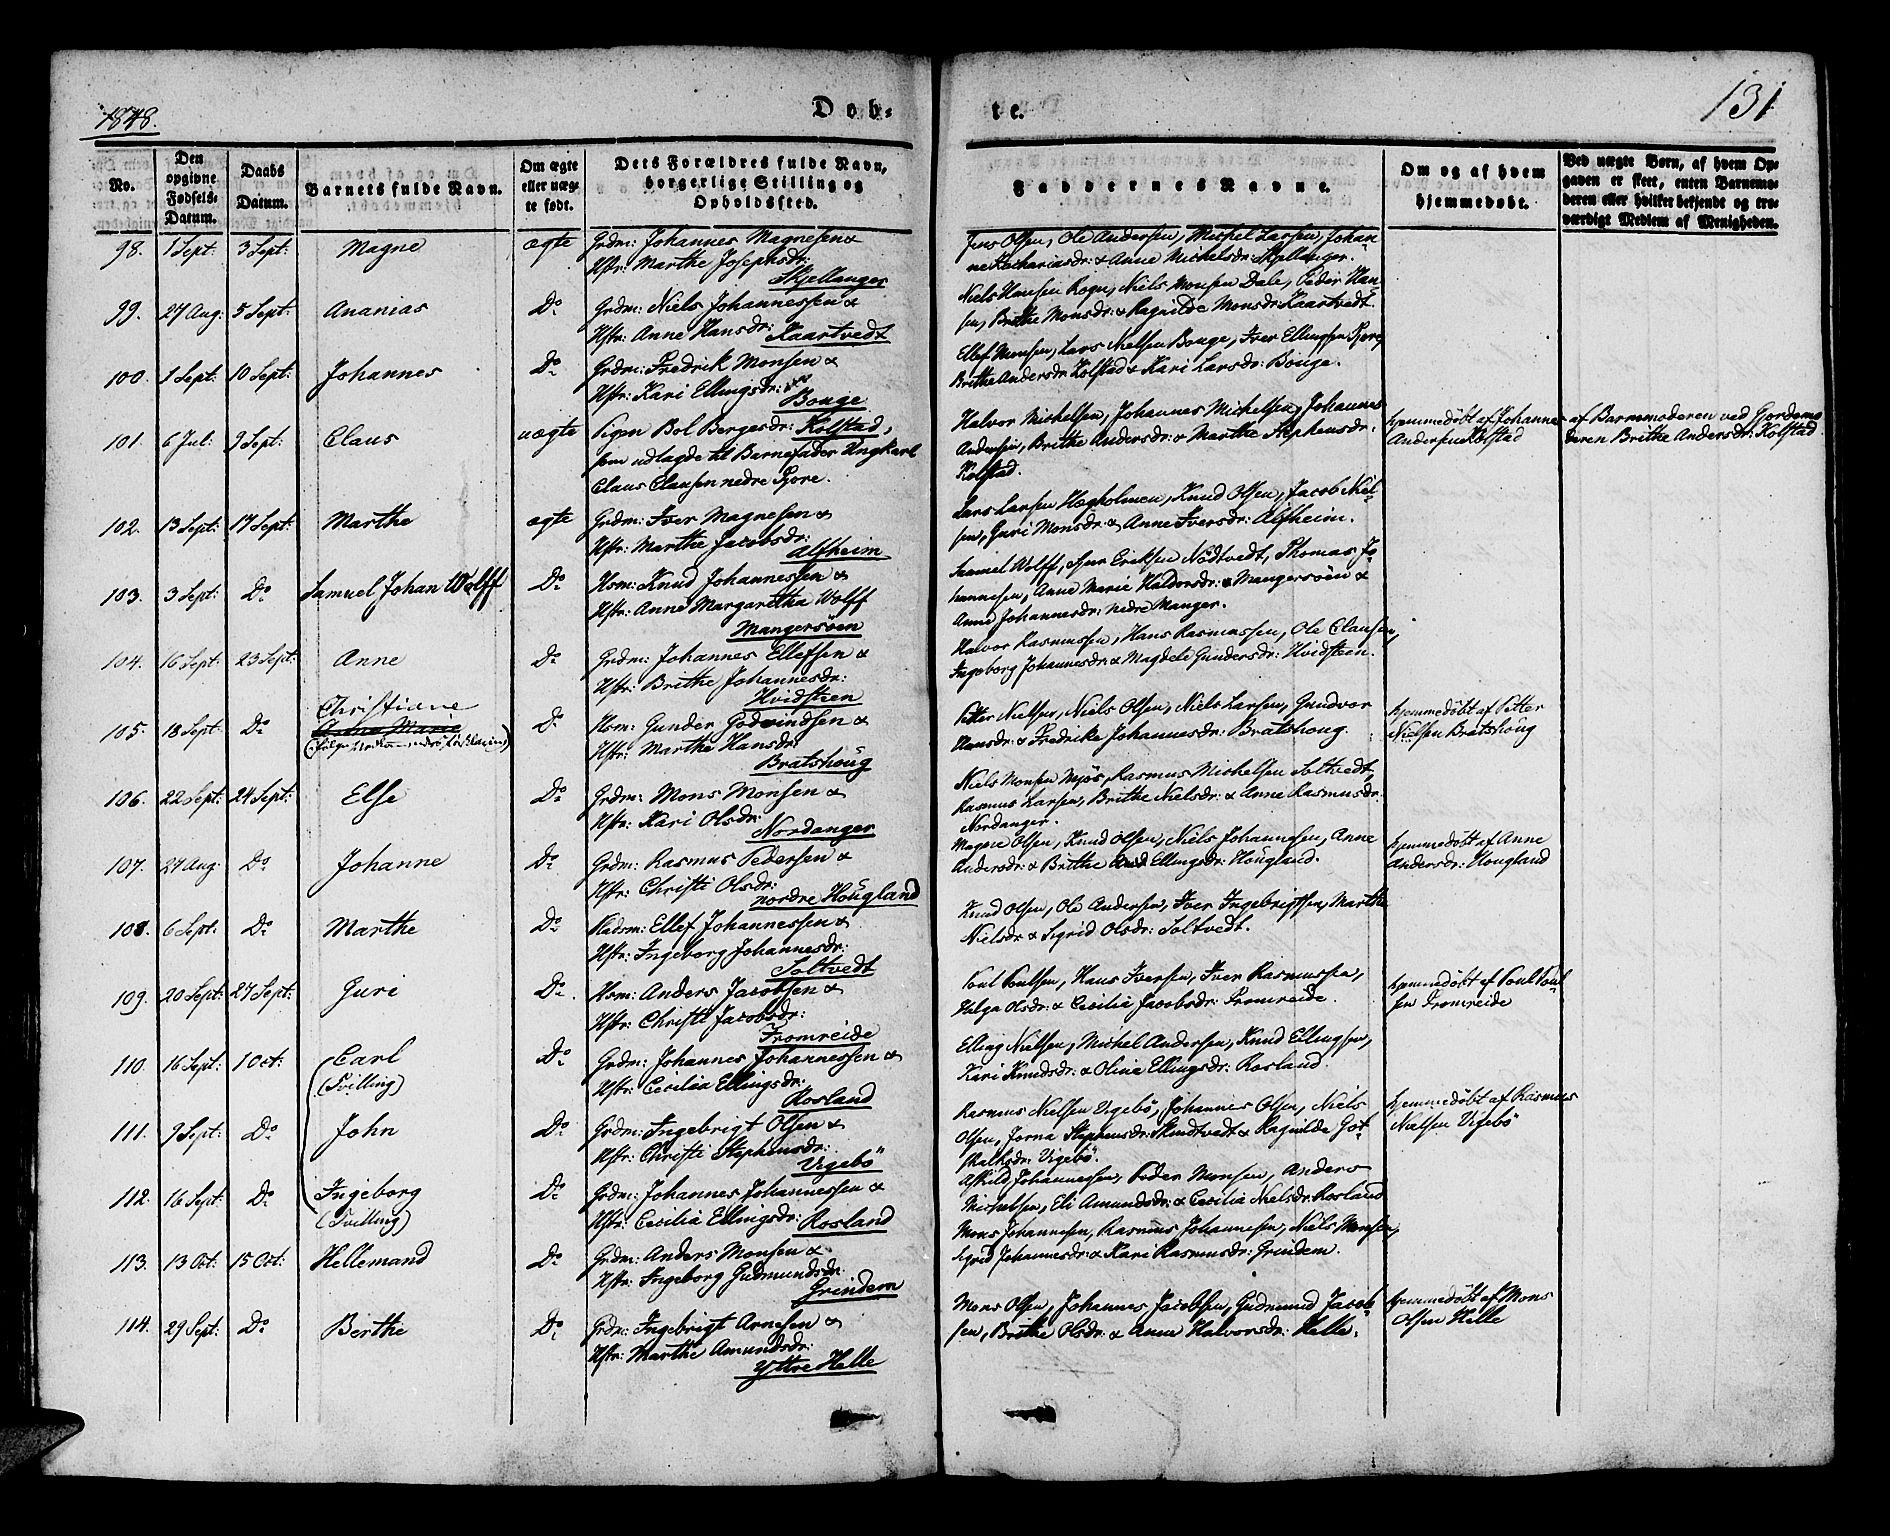 1848.
Døb-
te.
131
No.
Den opgivne Fødsels-Datum.
Daabs Datum.
Barnets fulde Navn.
Om ægte eller uæg-te født.
Dets Forældres fulde Navn, borgerlige Stilling og Opholdssted.
Faddernes Navne.
Om og af hvem hjemmedøbt.
Ved uægte Børn, af hvem Op-gaven er skeet, enten Barnemo-deren eller hvilket bekjendt og tro-værdigt Medlem af Menigheden.
98. 1 Sept: 3 Sept: Magne ægte Grdm: Johannes Magnesen &
Hstr: Marthe Josephsdr:
Skjellanger
Jens Olsen, Ole Andersen, Michel Larsen, Johan-
ne Zachariasdr: & Anne Michelsdr: Skjellanger.
99. 27 Aug: 5 Sept: Ananias Do Grdm: Niels Johannessen &
Hstr: Anne Hansdr: Kaartvedt
Niels Hansen Rogn, Niels Monsen Dale, Peder Han-
sen, Brithe Monsdr: & Ragnilde Monsdr: Kaartvedt.
100. 1 Sept: 10 Sept: Johannes Do Grdm: Fredrik Monsen &
Hstr: Kari Ellingsdr:
Bouge
Ellef Monsen, Lars Nielsen Bouge, Iver Ellingsen
Brithe Andersdr: Kolstad & Kari Larsdr: Bouge.
101. 6 Jul: 9 Sept: Claus uægte Pigen Bol Bergesdr: Kolstad,
som udlagde til Barnefader Ungkarl
Claus Clausen nedre
Halvor Michelsen, Johannes Michelsen, Johannes
Andersen, Brithe Andersdr: & Marthe Stephensdr:
Kolstad.
hjemmedöbt af Johannes
Andersen Kolstad
af Barnemoderen ved Gjordemo
deren Brithe Andersdr: Kolstad
102. 13 Sept: 17 Sept: Marthe ægte Grdm: Iver Magnesen &
Hstr: Marthe Jacobsdr:
Alfheim
Lars Larsen Hægholmen, Knud Olsen, Jacob Niel-
sen, Guri Monsdr: & Anne Iversdr: Alfheim.
103. 3 Sept: Do Samuel Johan Wolff Do Hsm: Knud Johannessen &
Hstr: Anne Margaretha Wolff
Mangersöen
Samuel Wolff, Eriksen Nödtvedt, Thomas Jo
hannesen, Anne Marie Haldorsdr: Mangersöen &
Anne Johannesdr: nedre Manger.
104. 16 Sept: 23 Sept: Anne Do Grdm: Johannes Ellefsen &
Hstr: Brithe Johannesdr:
Hvidsteen
Halvor Rasmussen, Hans Rasmussen, Ole Clausen,
Ingeborg Johannesdr: & Magdele Gundersdr: Hvidsteen.
105. 18 Sept: Do Christiane
Anne Marie
Do Hsm: Gunder Godvindsen &
Hstr: Marthe Hansdr:
Bratshoug
Petter Nielsen, Niels Olsen, Niels Larsen, Gundvor
Hansdr: & Fredrike Johannesdr: Bratshoug.
hjemmedöbt af Petter
Nielsen Bratshoug
106. 22 Sept: 24 Sept: Else Do Grdm: Mons Monsen &
Hstr: Kari Olsdr:
Nordanger
Niels Monsen Mjös, Rasmus Michelsen Soltvedt,
Rasmus Larsen, Brithe Nielsdr: & Anne Rasmusdr:
Nordanger.
107. 27 Aug: Do Johanne Do Grdm: Rasmus Pedersen &
Hstr: Christi Olsdr:
nordre Hougland
Magne Olsen, Knud Olsen, Niels Johannesen, Anne
Andersdr: & Brithe Ellingsdr: Hougland.
hjemmedöbt af Anne
Andersdr: Hougland
108. 6 Sept: Do Marthe Do Pladsm: Ellef Johannessen &
Hstr: Ingeborg Johannesdr:
Soltvedt
Knud Olsen, Ole Andersen, Iver Ingebrigtsen, Marthe
Nielsdr: & Sigrid Olsdr: Soltvedt.
109. 20 Sept: 27 Sept: Guri Do Hsm: Anders Jacobsen &
Hstr: Christi Jacobsdr:
Fromreide
Poul Poulsen, Hans Iversen, Iver Rasmussen,
Helga Olsdr: & Cecilia Jacobsdr: Fromreide.
hjemmedöbt af Poul Poul-
sen Fromreide
110. 16 Sept: 1 Oct: Carl
(Tvilling)
Do Grdm: Johannes Johannessen &
Hstr: Cecilia Ellingsdr:
Rosland
Elling Nielsen, Michel Andersen, Knud Ellingsen,
Kari Knudsdr: & Olina Ellingsdr: Rosland.
111. 9 Sept: Do John Do Grdm: Ingebrigt Olsen &
Hstr: Christi Stephensdr:
Vigebö
Rasmus Nielsen Vigebö, Johannes Olsen, Niels
Olsen, Jorna Stephensdr: Skindtvedt & Ragnilde Got-
skalksdr: Vigebö.
hjemmedöbt af Rasmus
Nielsen Vigebö
112. 16 Sept: Do Ingeborg
(Tvilling)
Do Grdm: Johannes Johannessen &
Hstr: Cecilia Ellingsdr: Rosland
Askild Johannesen, Peder Monsen, Anders
Michelsen, Eli Amundsdr: & Cecilia Nielsdr: Rosland
113. 13 Oct: 15 Oct: Hellemand Do Grdm: Anders Monsen &
Hstr: Ingeborg Gudmundsdr:
Grindem
Mons Johannesen, Rasmus Johannesen, Niels Monsen,
Sigrid Johannesdr: & Kari Rasmusdr: Grindem.
114. 29 Sept: Do Berthe Do Grdm: Ingebrigt Arnesen &
Hstr: Marthe Amundsdr:
Yttre Helle
Mons Olsen, Johannes Jacobsen, Gudmund Jacob-
sen, Brithe Olsdr: & Anne Halvorsdr: Helle.
hjemmedöbt af Mons
Olsen Helle